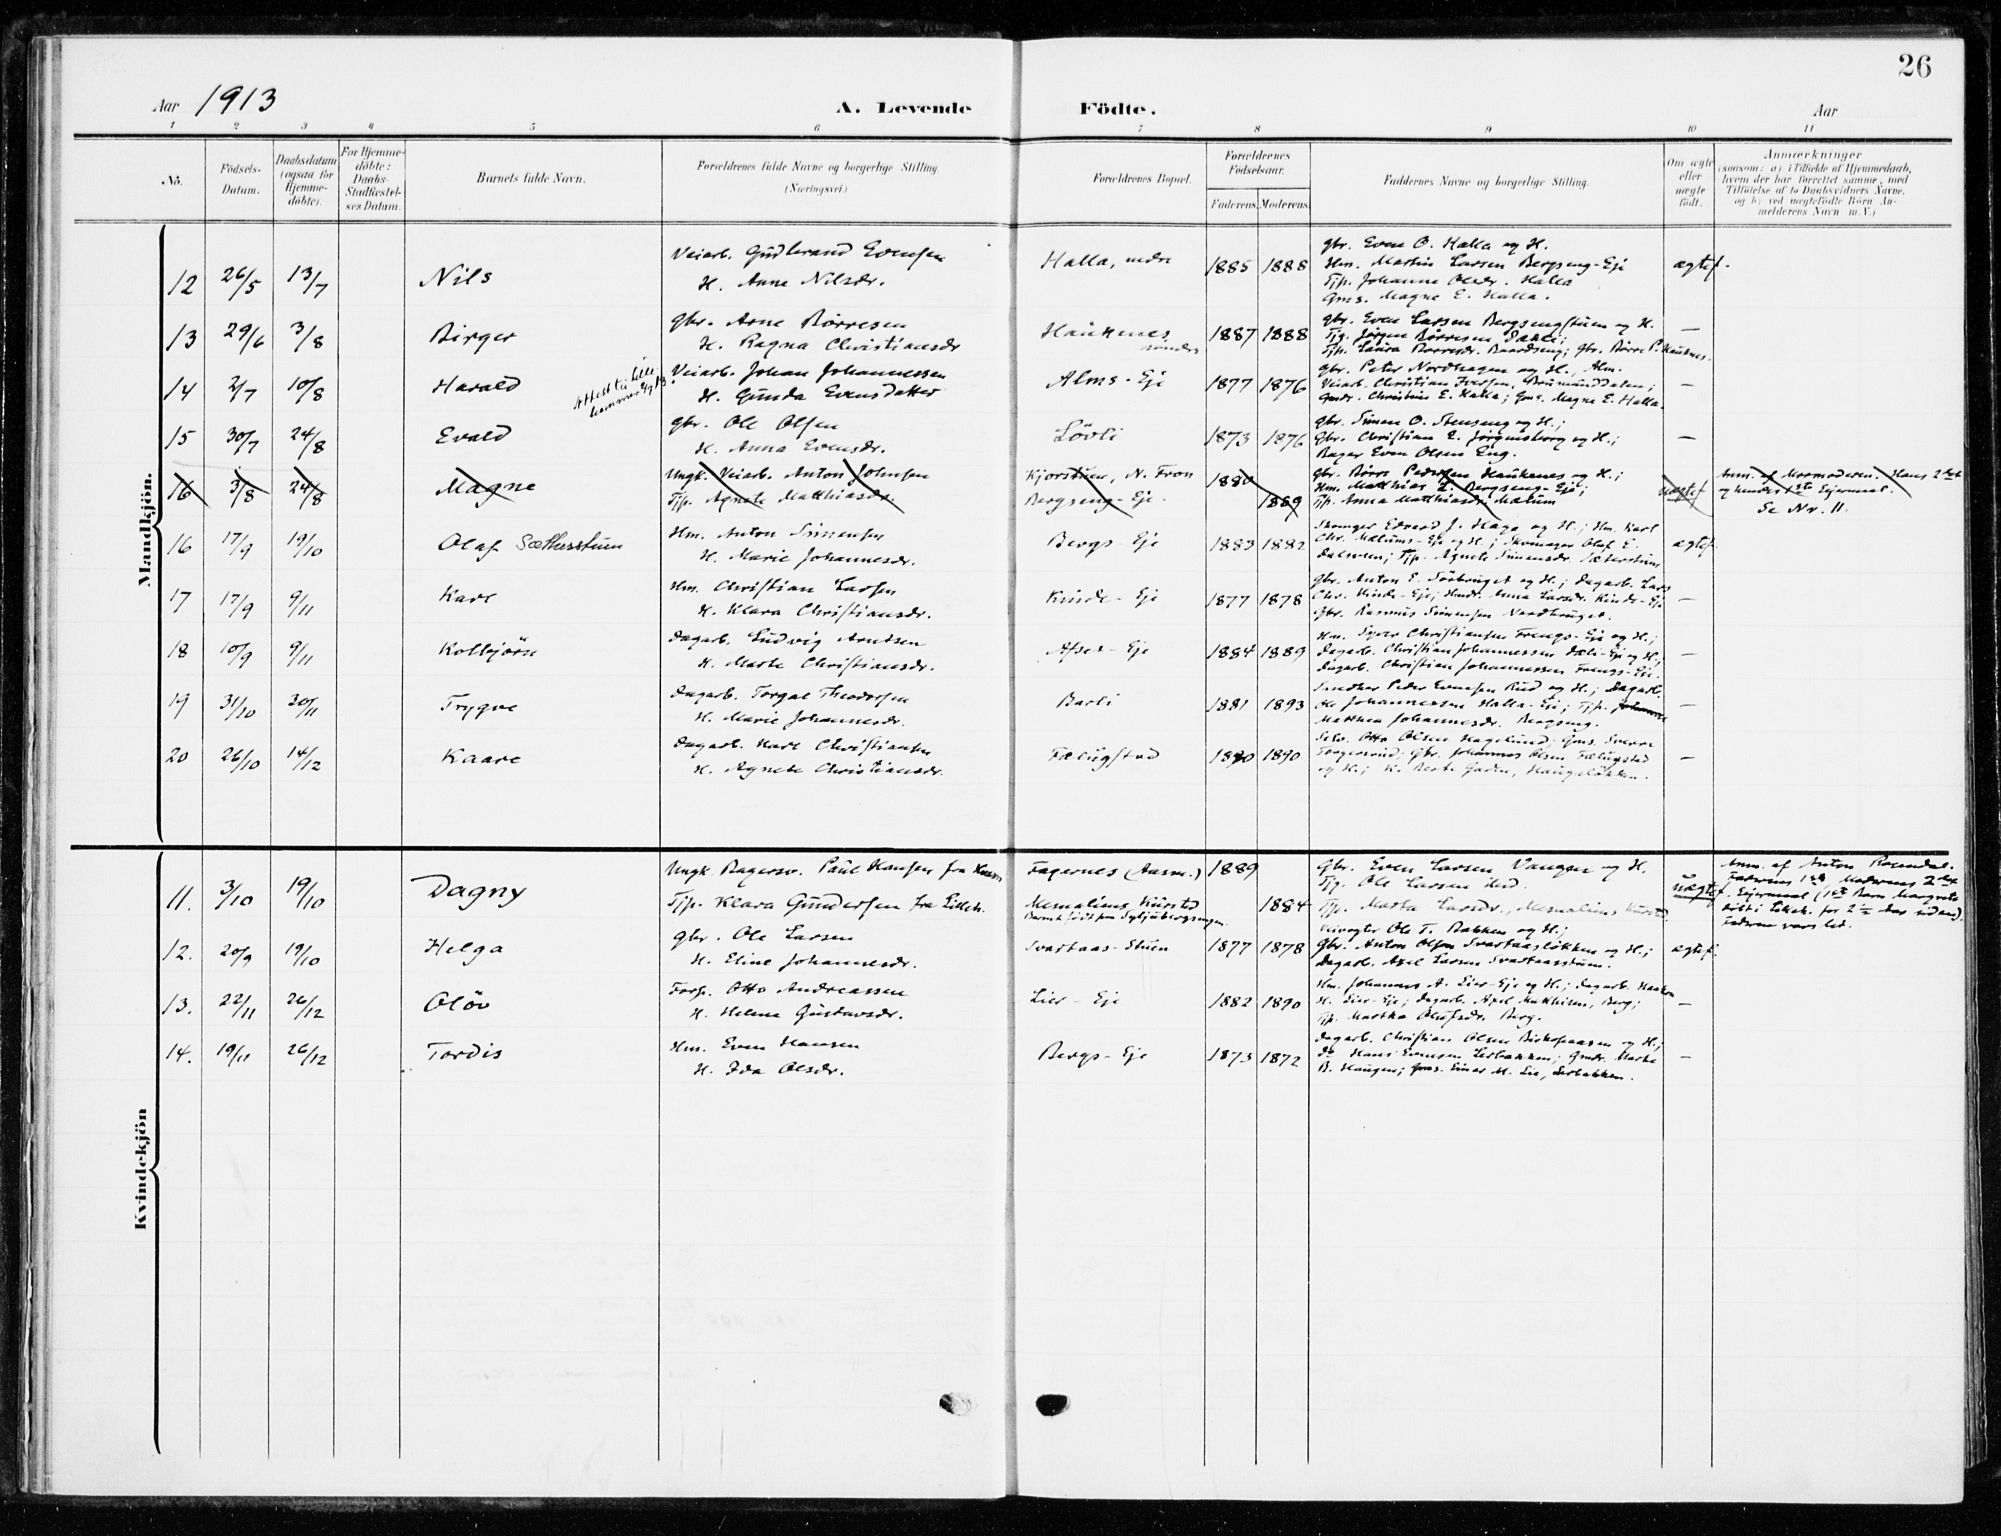 26
Aar 1913 A. Levende Födte. Aar
1 2 3 4 5 6 7 8 9 10 11
No.
Födsels-Datum.
Daabsdatum (ogsaa for Hjemme-döbte).
For Hjemme-döbte: Daabs-Stadfæstel-ses Datum.
Barnets fulde Navn.
Forældrenes fulde Navne og borgerlige Stilling.
(Næringsvei.)
Forældrenes Bopæl.
Forældrenes Födselsaar.
Faderens. Moderens.
Faddernes Navne og borgerlige Stilling.
Om ægte eller uægte födt.
Anmærkninger
(saasom: a) i Tilfælde af Hjemmedaab,
hvem der har forrettet samme, med
Tilföielse af to Daabsvidners Navne,
og b) ved uægtefödte Börn An-
melderens Navn m. V.)
Mandkjön.
12 26/5 13/7 Nils
Veiarb. Gudbrand Evensen
H. Anne Nilsdr.
Halla, nedre 1885 1888
Gbr. Even O. Halla og H.
Hm. Martin Larsen Bergseng-Eje
Tjp. Johanne Olsdr. Halla
Gms. Magne E. Halla.
ægtef.
13 29/6 3/8 Birger
Gbr. Arne Börresen
H. Ragna Christiansdr
Haukenes söndre 1887 1888
Gbr. Even Larsen Bergsengstuen og H.
Tjg. Jörgen Börresen Dæhli;
Tjp. Laura Börresdr. Baardseng; Gbr. Börre P. Hauknes.
—
14 2/7 10/8 Harald
Attest til Lille-
hammer
Veiarb. Johan Johannessen
H. Gunda Evensdatter
Alms-Eje 1877 1876
Gbr. Peter Nordhagen og H., Alm.
Veiarb. Christian Iversen, Brumunddalen;
Gmdr. Christine E. Halla; Gms. Magne E. Halla.
—
15 30/7 24/8 Evald
Gbr. Ole Olsen
H. Anna Evensdr.
Lövli 1873 1876
Gbr. Simen O. Stenseng og H.;
Gbr. Christian E. Jörgensborg og H.;
Bager Even Olsen Eng.
—
16 3/8 24/8 Magne
Ungk. Veiarb. Anton Johnsen
Tjp. Agnete Matthiasdr.
Kjorstuen, N. Fron
Bergseng-Eje
1880
1889
Gbr. Börre Pedersen Haukenes og H.;
Hm. Matthias L. Bergseng-Eje;
Tjp. Anna Matthiasdr. Mælum
uægtef
Anm. af Mormoderen. Hans 2det
og hendes 1ste Leiermaal.
Se Nr. 11.
16 17/9 19/10 Olaf Sæthersstuen
Hm. Anton Simensen
H. Marie Johannesdr.
Bergs-Eje 1883 1882
Skomager Edvard J. Haga og H.; Hm. Karl
Chr. Mælums-Eje og H.; Skomager Olaf E.
Dalsveen; Tjp. Agnete Simensdr. Sæterstuen
ægtef.
17 17/9 9/11 Karl
Hm. Christian Larsen
H. Klara Christiansdr.
Kinde-Eje 1877 1878
Gbr. Anton E. Sörbruget og H.; Dagarb. Lars
Chr. Kinde-Eje; Hmdr. Anna Larsdr. Kinde-Eje
Gbr. Rasmus Simensen Nordbruget.
—
18 10/9 9/11 Kolbjörn
Dagarb. Ludvig Arndsen
H. Marte Christiansdr.
Afset-Eje 1884 1889
Hm. Syver Christiansen Frengs-Eje og H.;
Dagarb. Christian Johannessen Dæli-Eje og H.;
Dagarb. Christian Johannessen Frengs-Eje.
—
19 31/10 30/11 Trygve
Dagarb. Torgal Theodorsen
H. Marie Johannesdr.
Barli 1881 1893
Snedker Peder Evensen Rud og H.; Dagarb.
Ole Johannessen Halla-Eje; Tjp. Johanne
Matthea Johannesdr. Bergseng.
—
20 26/10 14/12 Kaare
Dagarb. Karl Christiansen
H. Agnete Christiansdr.
Fælugstad 1890 1890
Selv. Otto Olsen Hagelund; Gms. Sverre
Torgersrud; Gbr. Johannes Olsen Fælugstad
og H.; K. Berte Gaden, Haugslökken.
—
Kvindekjön
11. 3/10 19/10 Dagny
Ungk. Bagersv. Paul Hansen fra
Tjp. Klara Gundersen fra Lilleh.
Fagernes (Aasm.) 1889
Mesnaliens Kursted
1884
Barnet födt paa Sykjubergsengen
Gbr. Even Larsen Vangen og H.
Tjg. Ole Larsen
Tjp. Marta Larsdr., Mesnaliens Kursted
uægtef
Anm. af Anton Rosendal.
Faderens 1ste Moderens 2det
Leiermaal (1ste Barn Margrete
12. 20/9 19/10 Helga
Gbr. Ole Larsen
H. Eline Johannesdr.
Svartaas-Stuen 1877 1878
Veivogter Ole T. Bakken og H.;
Gbr. Anton Olsen Svartaaslökken og H.;
Dagarb. Axel Larsen Svartaasstuen.
ægtef.
13. 22/11 26/12 Olöv
Forp. Otto Andreassen
H. Helene Gustavsdr.
Lier-Eje 1882 1890
Hm. Johannes A. Lier-Eje og H.; Dagarb. Haakon
H. Lier-Eje; Dagarb. Axel Matthisen, Berg;
Tjp. Martha Olufsdr. Berg.
—
14. 19/11 26/12 Tordis
Hm. Even Hansen
H. Ida Olsdr.
Bergs-Eje 1873 1872
Dagarb. Christian Olsen Biskopaasen og H.;
Do Hans Evensen Lerbakken; Gmdr. Marte
B. Haugen; Gms. Einar M. Lie, Lerbakken.
—